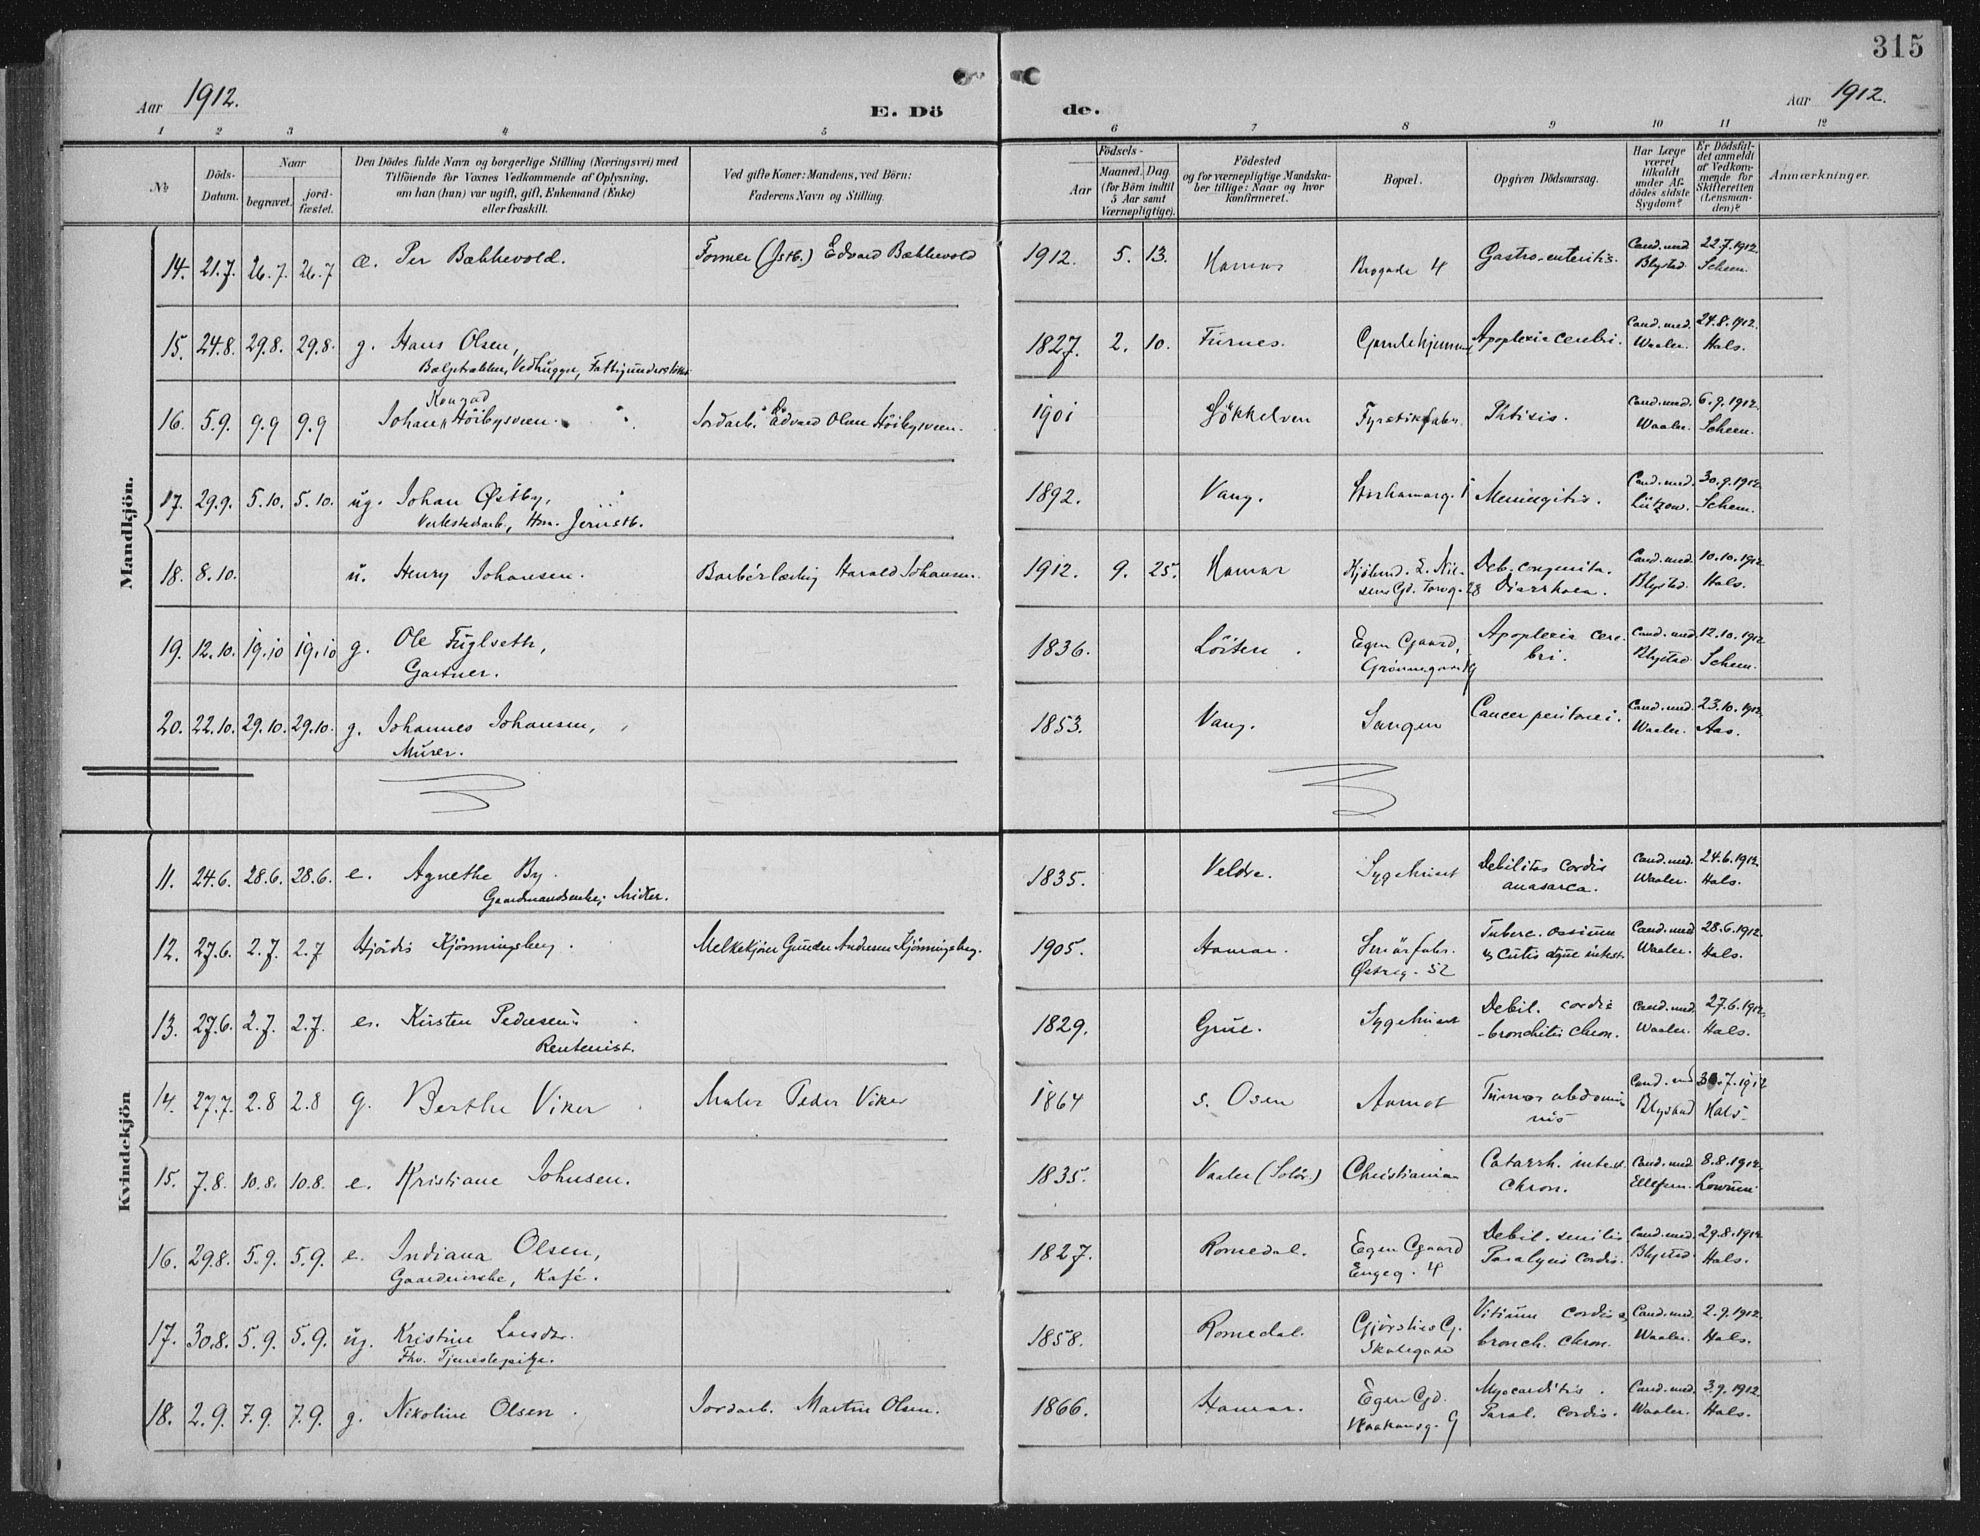 315
Aar 1912.
E. Dö
de.
Aar 1912.
1 2 3 4 5 6 7 8 9 10 11 12
№
Döds-
Datum.
Naar
begravet.
jord-
fæstet.
Den Dödes fulde Navn og borgerlige Stilling (Næringsvei) med
Tilföiende for Voxnes Vedkommende af Oplysning,
om han (hun) var ugift, gift, Enkemand (Enke)
eller fraskilt.
Ved gifte Koner: Mandens, ved Börn:
Faderens Navn og Stilling.
Födsels-
Aar
Maaned. Dag.
(for Börn indtil
5 Aar samt
Værnepligtige).
Födested
og for værnepligtige Mandska-
ber tillige: Naar og hvor
konfirmeret.
Bopæl.
Opgiven Dödsaarsag.
Har Læge
været
tilkaldt
under Af-
dödes sidste
Sygdom?
Er Dödsfal-
det anmeldt
af Vedkom-
mende for
Skifteretten
(Lensman-
den)?
Anmærkninger.
Mandkjön.
14. 21.7. 26.7. 26.7 æ. Per Bækkevold. Former (Jstb.) Edvard Bækkevold 1912. 5. 13. Hamar Brogade 4 Gastro-enteritis. Cand. med Blystad. 22.7.1912. Scheen.
15. 24.8. 29.8. 29.8. g. Hans Olsen, 1827. 2. 10. Furnes. Apoplexia cerebri. Cand. med. Waaler. 24.8.1912. Hals.
Vedhugger,
16. 5.9. 9.9 9.9 Johan Konrad Höibysveen. Jordarb. Edvard Olsen Höibysveen. 1901 Sökkelven Fyrstikfabr. Phtisis. Cand. med. Waaler. 6.9.1912. Scheen.
17. 29.9. 5.10. 5.10. ug. Johan Østby, 1892. Vang. Storhamarg. 1 Meningitis. Cand. med. Lützow. 30.9.1912. Scheen.
Verkstedarb., Hm. Jernstb.
18. 8.10. u. Henry Johansen. Barbérlærling Harald Johansen. 1912. 9. 25. Hamar Deb. congenita. Cand. med Blystad. 10.10.1912 Hals.
Gd. Torvg. 28 Diarrhoea.
19. 12.10. 19.10 19.10 g. Ole Fuglseth, 1836. Löiten Egen Gaard, Apoplexia cere- Cand. med. Blystad. 12.10.1912 Scheen.
Gartner. Grönnegade 19 bri.
20. 22.10. 29.10. 29.10. g. Johannes Johansen, 1853. Vang. Sangen Cancer peritonei. Cand. med. Waaler. 23.10.1912. Aas.
Murer.
Kvindekjön
11. 24.6. 28.6. 28.6. e. Agnethe By. 1835. Veldre. Sygehuset Debilitas cordis Cand. med. Waaler. 24.6.1912. Hals.
Gaardmandsenke, anasarca.
12. 27.6. 2.7. 2.7 Hjördis Kjönningsberg. Melkekjörer Gunder Andresen Kjönningsberg. 1905. Hamar. Smörfabr. Tuberc. ossium Cand. med Waaler. 28.6.1912. Hals.
Østreg. 52 & cutis atque intest.
13. 27.6. 2.7. 2.7. e. Kirsten Pedersen 1829. Grue. Sygehuset Debil. cordis Cand. med. Waaler. 27.6.1912. Hals.
Rentenist. -bronchitis chron.
14. 27.7. 2.8 2.8 g. Berthe Viker Maler Peder Viker 1864 s. Osen Aamot Tumor abdomi- Cand. med Blystad 30.7.1912 Hals.
nis
15. 7.8. 10.8. 10.8. e. Kristiane Johnsen. 1835. Vaaler (Solör.) Christiania Catarrh. intest. Cand. med 8.8.1912.
chron.
16. 29.8. 5.9. 5.9. e. Indiana Olsen, 1827. Romedal. Egen Gaard Debil. senilis Cand. med. Blystad. 29.8.1912 Hals.
Gaardeierske, Kafé. Engeg. 4 Paralysis cordis.
17. 30.8. 5.9. 5.9. ug. Kristine 1858. Romedal. Vitium cordis Cand. med. Waaler. 2.9.1912. Hals.
Fhv. Tjenestepike. Skolegade bronch. chron.
18. 2.9. 7.9. 7.9. g. Nikoline Olsen Jordarb. Martin Olsen. 1866. Hamar. Egen Gd. Myocarditis. Cand. med. Waaler. 3.9.1912. Hals.
Haakonsg. 9 Paral. cordis.